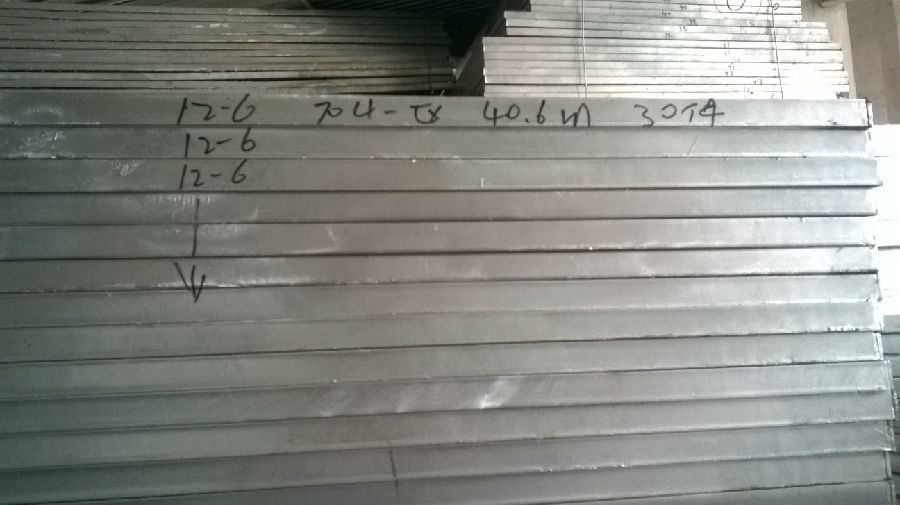 12-6 704-Tx 40.6m 30片
12-6
12-6